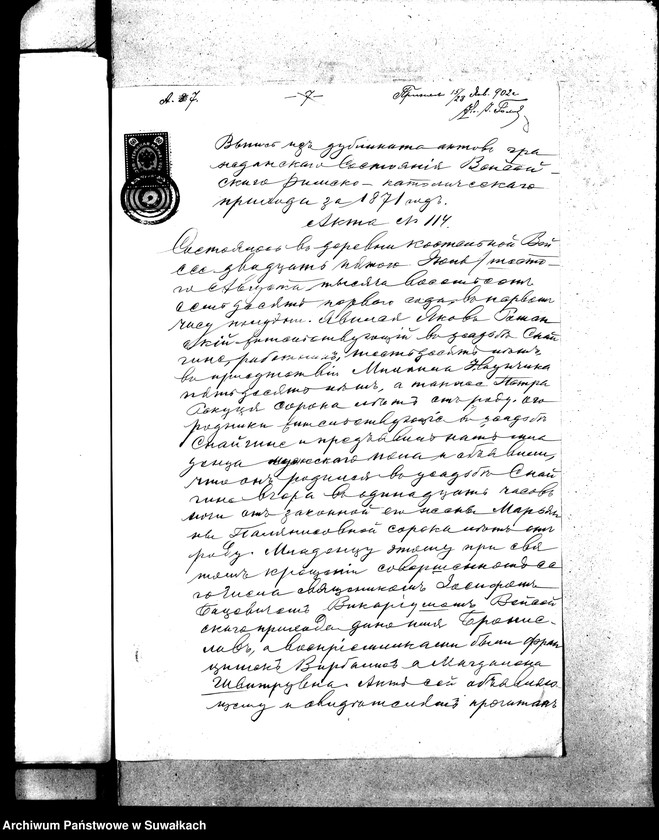 А. № 7.
— 7 —
15/28 Янв. 902 г.
Выпись изъ дубликата актовъ гра
жданскаго Состоянія Войсой-
скаго Римско-католическаго
прихода за 1871 годъ.
Акта № 114.
Состоялось въ деревни костельной Вой
сее двадцать пятого Июля / шесто-
го Августа тысяча восемьсотъ
семьдесятъ перваго года въ первомъ
часу полудни. Явился Яковъ
жительствующій въ усадьбѣ Снай
гине, работникъ, шестьдесятъ лѣтъ
въ присутствіи
пятьдесятъ лѣтъ, а также Петра
сорока лѣтъ отъ роду. оба
жительствующіе въ усадьбѣ
Снайгине и предъявилъ намъ мла
денца мужскаго пола и объявилъ,
что онъ родился въ усадьбѣ Снай
гине вчера въ одинадцать часовъ
ночи отъ законной его жены Марьян
ны сорока лѣтъ отъ
роду. Младенцу этому при свя
томъ крещеніи совершенномъ се
го числа священникомъ Іосифомъ
Викаріушомъ Войсой
скаго прихода дано имя Бронис-
лавъ, а воспріемниками были Фран
цишекъ Вирбалисъ и Магдалена
Акта сей объявляю
щему и свидѣтелямъ прочитанъ
Archiwum Państwowe w Suwałkach